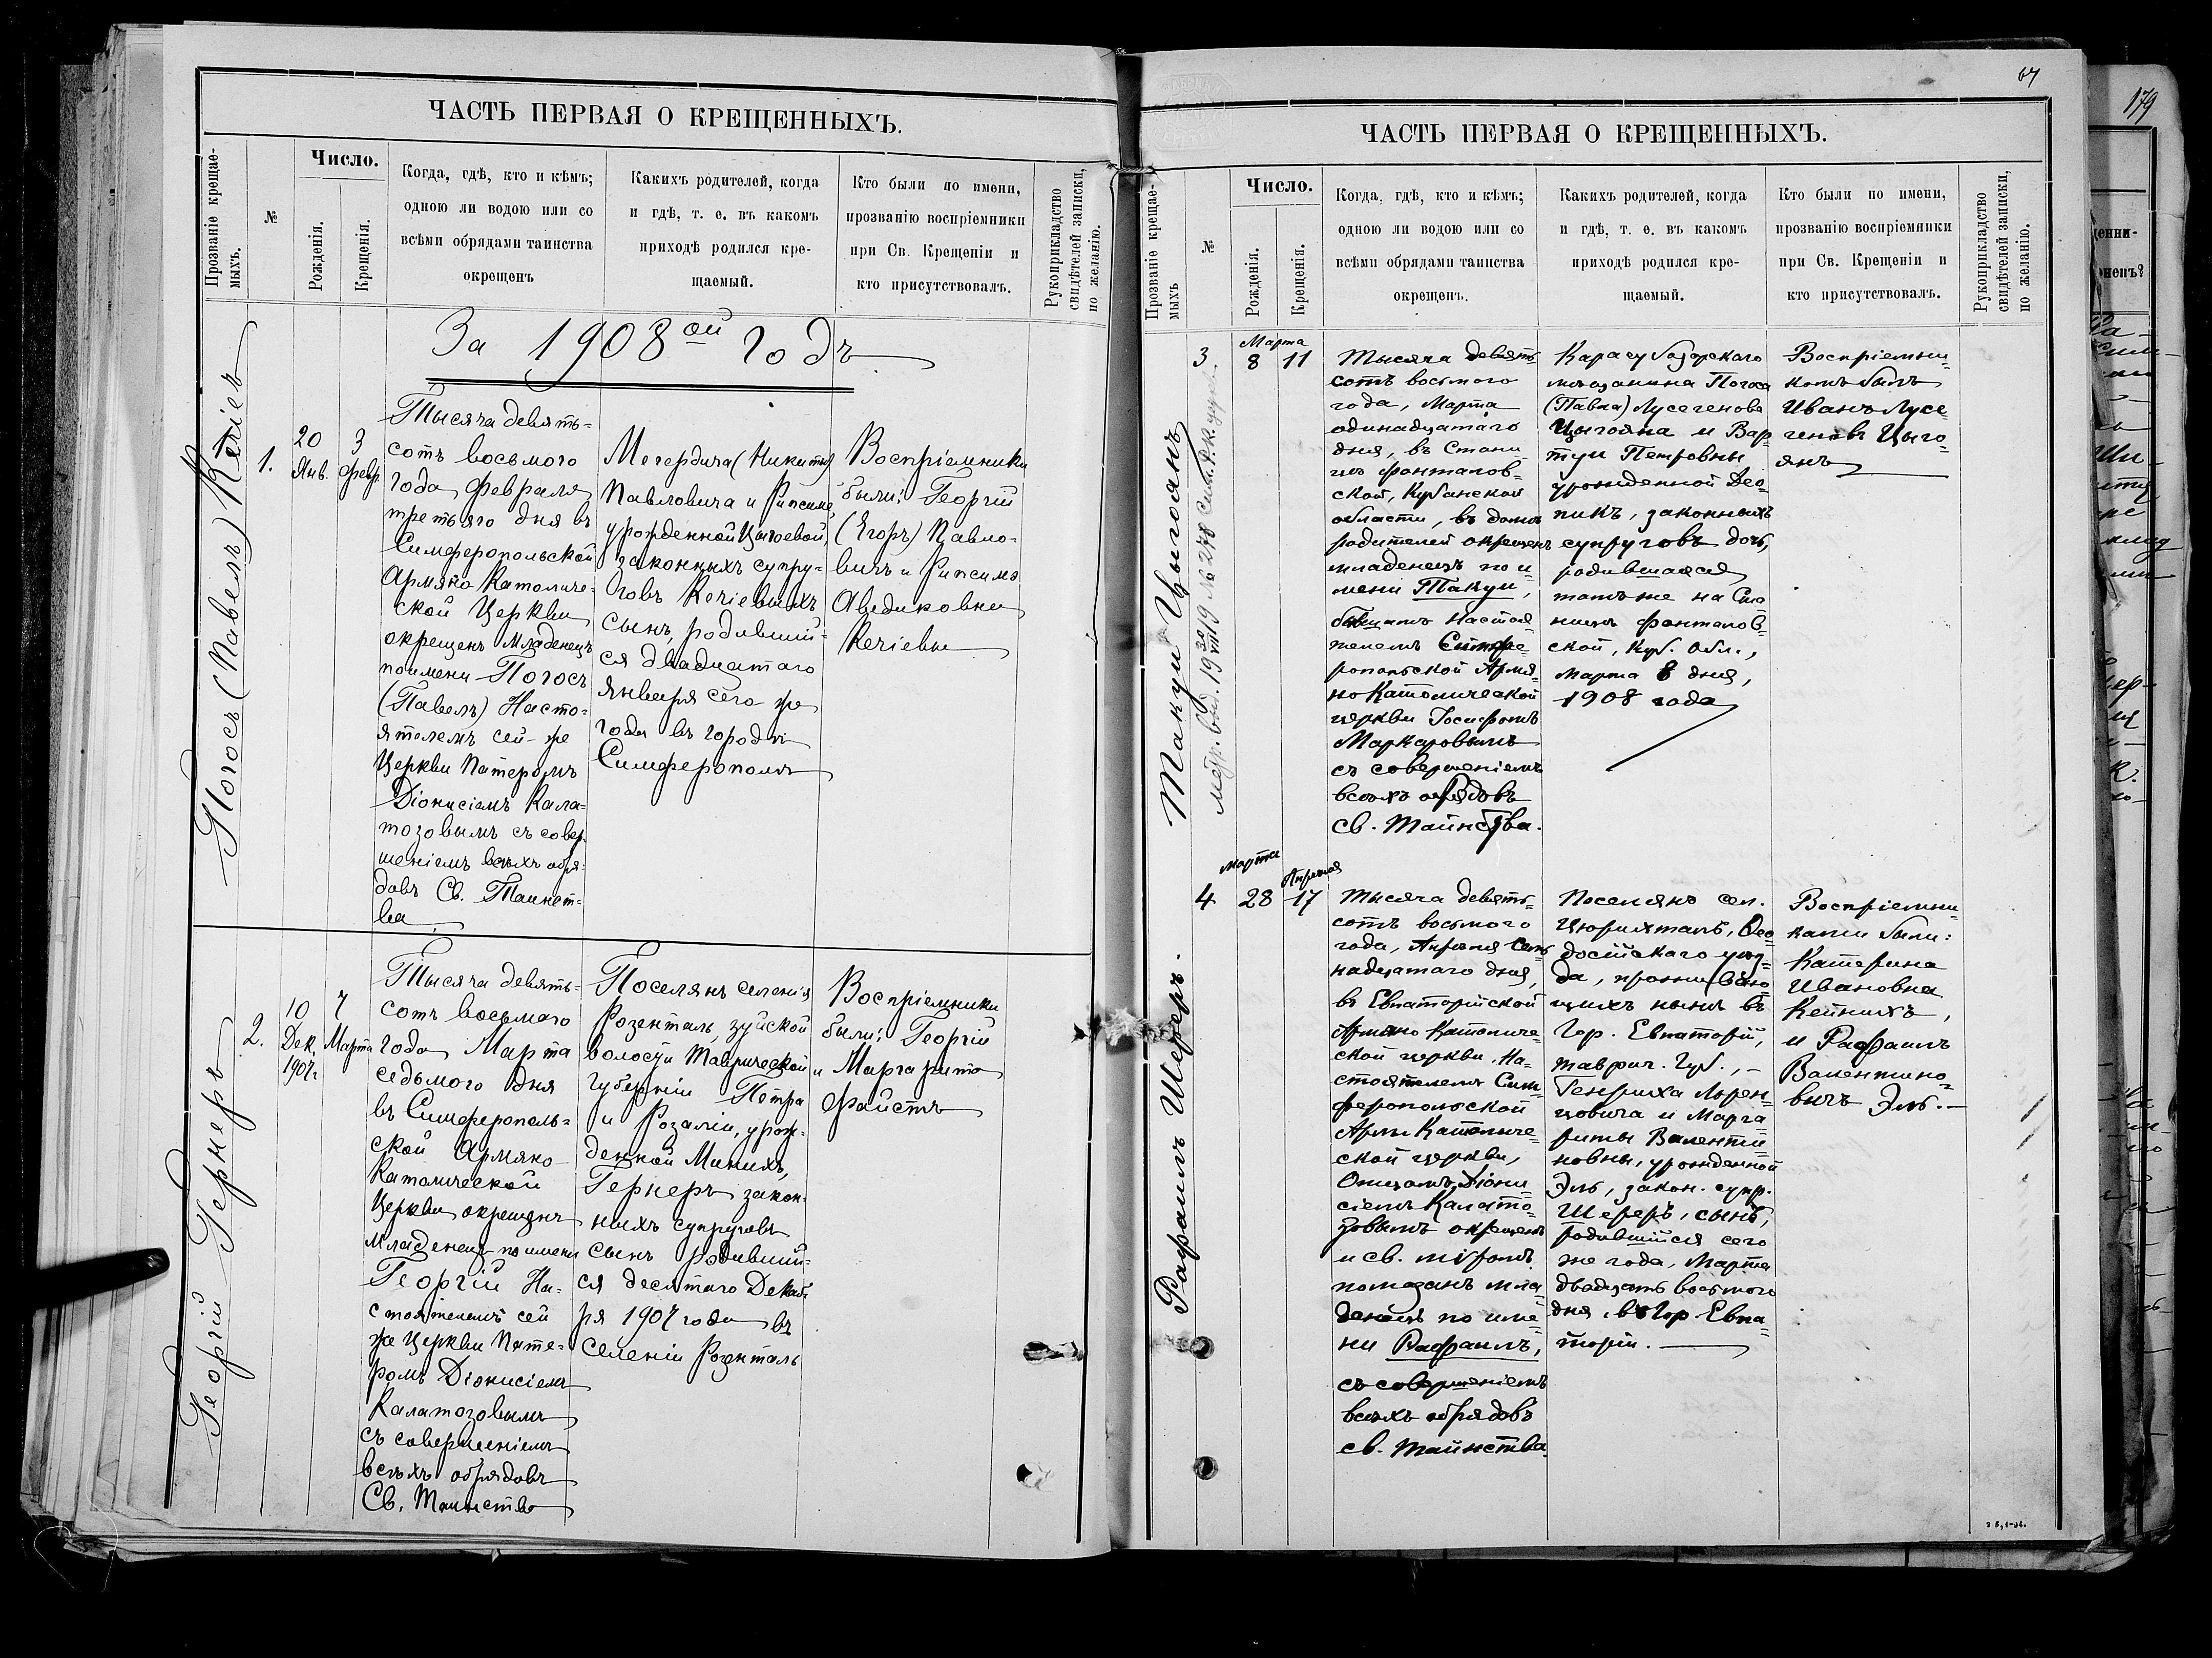 ЧАСТЬ ПЕРВАЯ О КРЕЩЕННЫХЪ.
Прозваніе крещае-
мыхъ.
№
Число.
Рожденія.
Крещенія.
Когда, гдѣ, кто и кѣмъ;
одною ли водою или со
всѣми обрядами таинства
окрещенъ
Какихъ родителей, когда
и гдѣ, т. е. въ какомъ
приходѣ родился кре-
щаемый.
Кто были по имени,
прозванію воспріемники
при Св. Крещеніи и
кто присутствовалъ.
Рукоприкладство
свидѣтелей записки,
по желанію.
За 1908ой годъ
Погосъ (Павелъ) Кечіевъ
1.
20
Янв.
3
февр.
Тысяча девять-
сотъ восьмого
года февраля
третьяго дня въ
Симферопольской
Армяно Католиче-
ской Церкви
окрещенъ младенецъ
по имени Погосъ
(Павелъ) Насто-
ятелемъ сей-же
Церкви Патеромъ
Діонисіемъ Кала-
тозовымъ съ совер-
шеніемъ всѣхъ обря-
довъ Св. Таинст-
ва
Мегердича (Никиты)
Павловича и Рипсиме,
урожденной Цыгоевой,
законныхъ супру-
говъ Кечіевыхъ
сынъ, родившій-
ся двадцатаго
Января сего же
года въ городѣ
Симферополѣ
Воспріемники
были: Георгій
(Егоръ) Павло-
вичъ и Рипсиме
Аведиковна
Кечіевы
Георгій Гернеръ
2.
10
Дек.
1907 г.
7
Марта
Тысяча девять-
сотъ восьмаго
года Марта
седьмого дня
въ Симферополь-
ской Армяно
Католической
Церкви окрещенъ
младенецъ по имени
Георгій На-
стоятелемъ сей
же Церкви Пате-
ромъ Діонисіемъ
Калатозовымъ
съ совершеніемъ
всѣхъ обрядовъ
Св. Таинства
Поселянъ селенія
Розенталь, зуйской
волости Таврической
губерніи Петра
и Розаліи, урож-
денной Минихъ,
Гернеръ закон-
ныхъ супруговъ
сынъ родившій-
ся десятаго Декаб-
ря 1907 года въ
селеніи Розенталь
Воспріемники
были: Георгій
и Маргарита
Файстъ
67
ЧАСТЬ ПЕРВАЯ О КРЕЩЕННЫХЪ.
Прозваніе крещае-
мыхъ
№
Число.
Рожденія.
Крещенія.
Когда, гдѣ, кто и кѣмъ;
одною ли водою или со
всѣми обрядами таинства
окрещенъ.
Какихъ родителей, когда
и гдѣ, т. е. въ какомъ
приходѣ родился кре-
щаемый.
Кто были по имени,
прозванію воспріемники
при Св. Крещеніи и
кто присутствовалъ.
Рукоприкладство
свидѣтелей записки,
по желанію.
Такуи Цыгоянъ
3
Марта
8
11
Тысяча девять
сотъ восьмого
года, Марта
одинадцатаго
дня, въ Стани-
цѣ фонталов-
ской, Кубанской
области, въ домѣ
родителей окрещенъ
младенецъ по и-
мени Такуи,
бывшимъ Настоя-
телемъ Симфе-
ропольской Армя-
но Католической
церкви Іосифомъ
Маркаровымъ
съ совершеніемъ
всѣхъ обрядовъ
св. Таинства.
Карасубазарского
мѣщанина Погоса
(Павла) Лусегенова
Цыгояна и Вар-
туи Петровны
урожденной Део-
пикъ, законныхъ
супруговъ дочь,
родившаяся
тамъ же на Ста
ницѣ фонталов-
ской, Куб. Обл.,
марта 8 дня,
1908 года
Воспріемни-
комъ былъ
Иванъ Лусе-
геновъ Цыго-
янъ
Рафаилъ Шереръ.
4
марта
28
Апрѣля
17
Тысяча девять-
сотъ восьмого
года, Апрѣля сем-
надцатаго дня,
въ Евпаторійской
Армяно Католиче-
ской церкви, На-
стоятелемъ Сим-
феропольской
Армяно Католиче-
ской церкви,
Отцомъ Діони-
сіемъ Калато-
зовымъ окрещенъ
и св. мѵромъ
помазанъ мла-
денецъ по име-
ни Рафаилъ,
съ совершеніемъ
всѣхъ обрядовъ
св. таинства.
Поселянъ сел.
Цюрихталь, Ѳео-
досійскаго уѣз-
да, проживаю-
щихъ нынѣ въ
Гор. Евпаторіи,
таврич. Губ., -
Генриха Лорен-
цовича и Марга-
риты Валенти-
новны, урожденной
Эль, закон. супр.
Шереръ, сынъ,
родившійся сего
же года, Марта
двадцать восьмого
дня въ Гор. Евпа-
торіи.
Воспріемни-
ками были:
Катерина
Ивановна
Кейнихъ,
и Рафаилъ
Валентино-
вичъ Эль.-
179